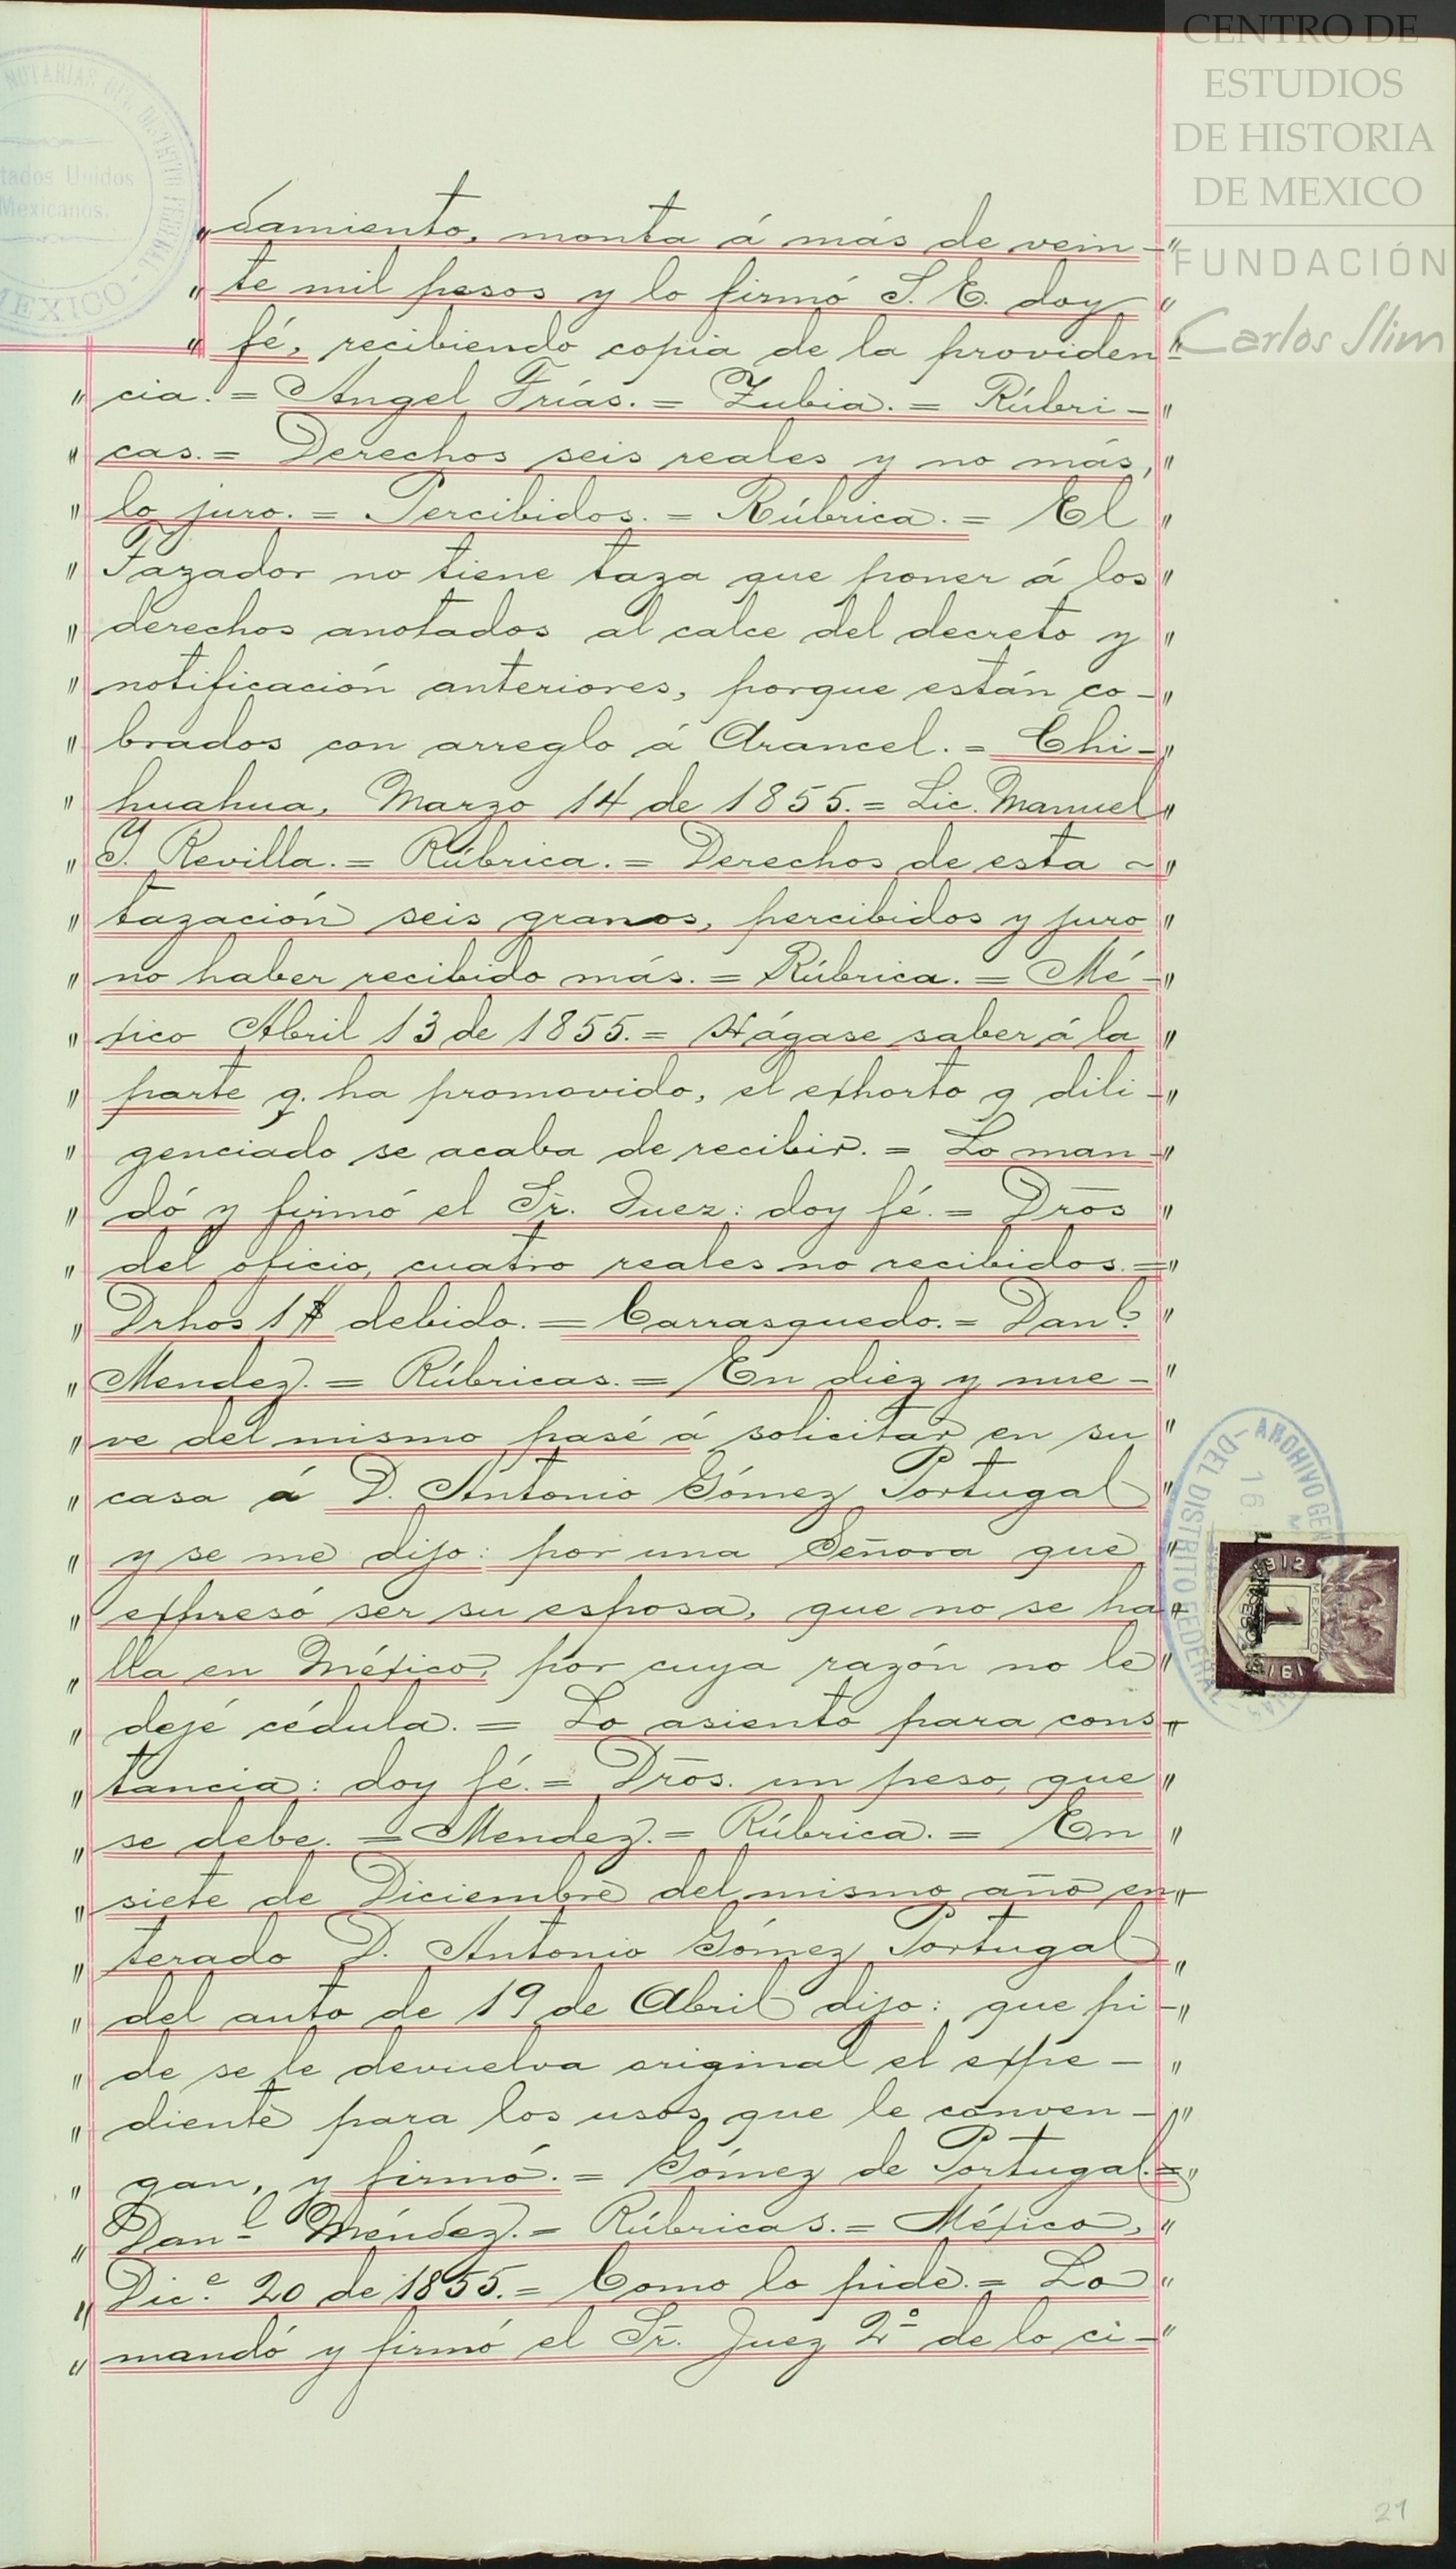 CENTRO DE
ESTUDIOS
DE HISTORIA
DE MEXICO
FUNDACIÓN
Carlos Slim
NOTARIAS DEL
Estados Unidos
Mexicanos.
MEXICO
" damiento, monta á más de vein- "
" te mil pesos y lo firmó S. E. doy "
" fé, recibiendo copia de la providen- "
" cia. = Angel Frías. = Zubia. = Rúbri- "
" cas. = Derechos seis reales y no más, "
" lo juro. = Percibidos. = Rúbrica. = El "
" Tazador no tiene taza que poner á los "
" derechos anotados al calce del decreto y "
" notificación anteriores, porque están co- "
" brados con arreglo á Arancel. = Chi- "
" huahua, Marzo 14 de 1855. = Lic. Manuel "
" Y. Revilla. = Rúbrica. = Derechos de esta ~ "
" tazación seis granos, percibidos y juro "
" no haber recibido más. = Rúbrica. = Mé- "
" xico Abril 13 de 1855. = Hágase saber á la "
" parte q. ha promovido, el exhorto q dili- "
" genciado se acaba de recibir. = Lo man- "
" dó y firmó el Sr. Juez: doy fé. = Drōs "
" del oficio, cuatro reales no recibidos. = "
" Drhos 1$ debido. = Carrasquedo. = Danl. "
" Mendez. = Rúbricas. = En diéz y nue- "
" ve del mismo pasé á solicitar en su "
" casa á D. Antonio Gómez Portugal "
" y se me dijo: por una Señora que "
" expresó ser su esposa, que no se ha- "
" lla en México, por cuya razón no le "
" dejé cédula. = Lo asiento para cons- "
" tancia: doy fé. = Drōs. un peso, que "
" se debe. = Mendez. = Rúbrica. = En "
" siete de Diciembre del mismo año en- "
" terado D. Antonio Gómez Portugal "
" del auto de 19 de Abril dijo: que pi- "
" de se le devuelva original el expe- "
" diente para los usos que le conven- "
" gan, y firmó. = Gómez de Portugal. = "
" Danl Méndez. = Rúbricas. = México, "
" Dic.e 20 de 1855. = Como lo pide. = Lo "
" mandó y firmó el Sr. Juez 2º de lo ci- "
ARCHIVO GEN
DEL DISTRITO FEDERAL
16
1912
MEXICO
1911
21